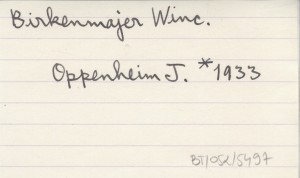 Birkenmajer Winc.
Oppenheim J. *1933
BT/OSŁ/5497